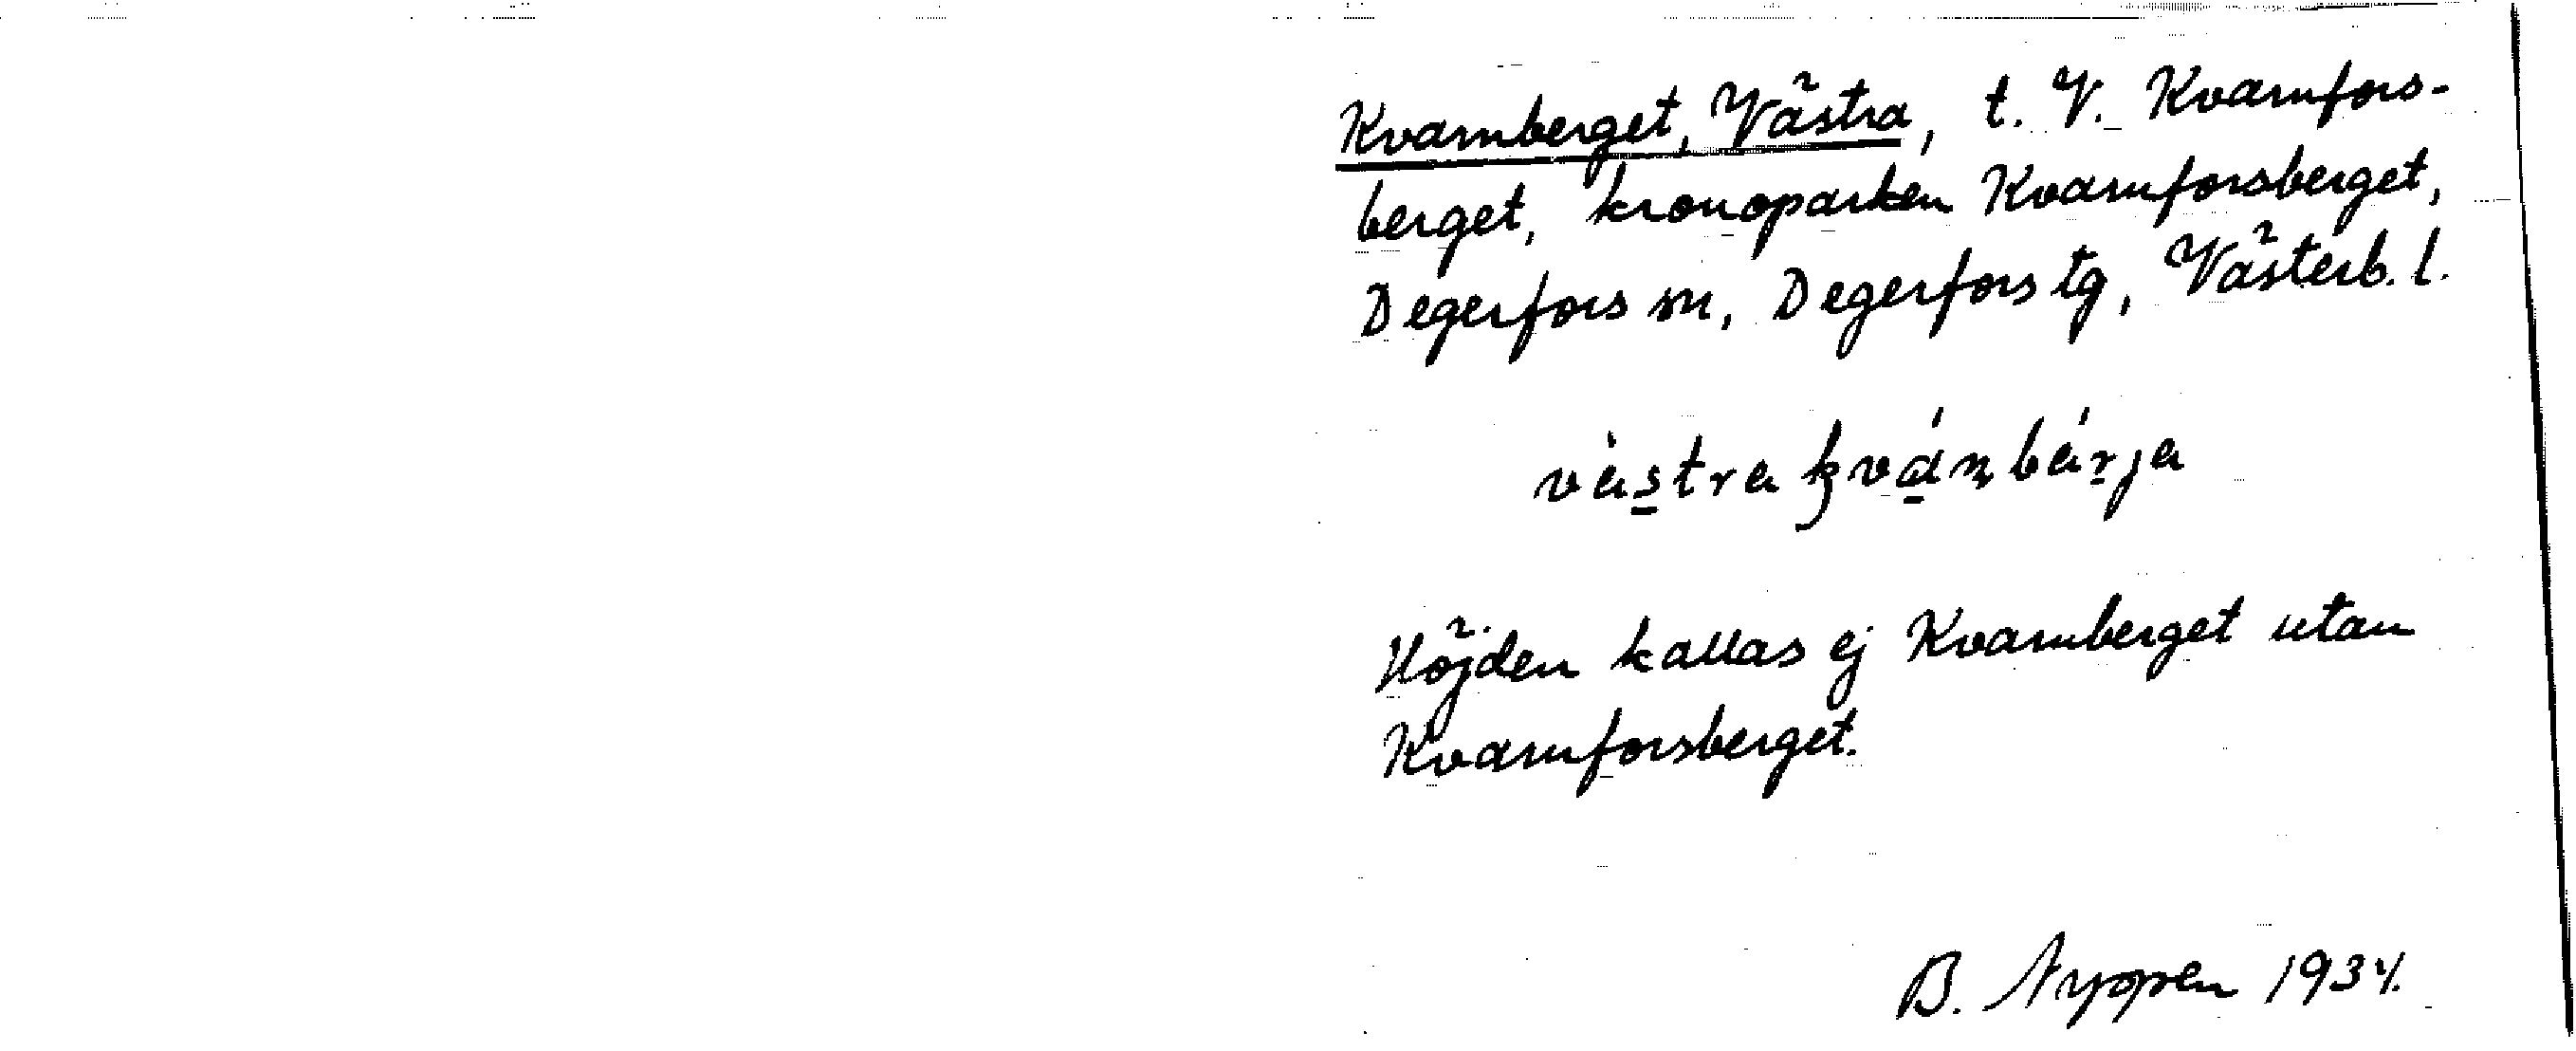 Kvarnberget, Västra, t. V. Kvarnfors-
berget, kronoparken Kvarnforsberget,
Degerfors sn, Degerfors tg, Västerb. l.
Höjden kallas ej Kvarnberget utan
Kvarnforsberget.
B. Nyppen 1934.